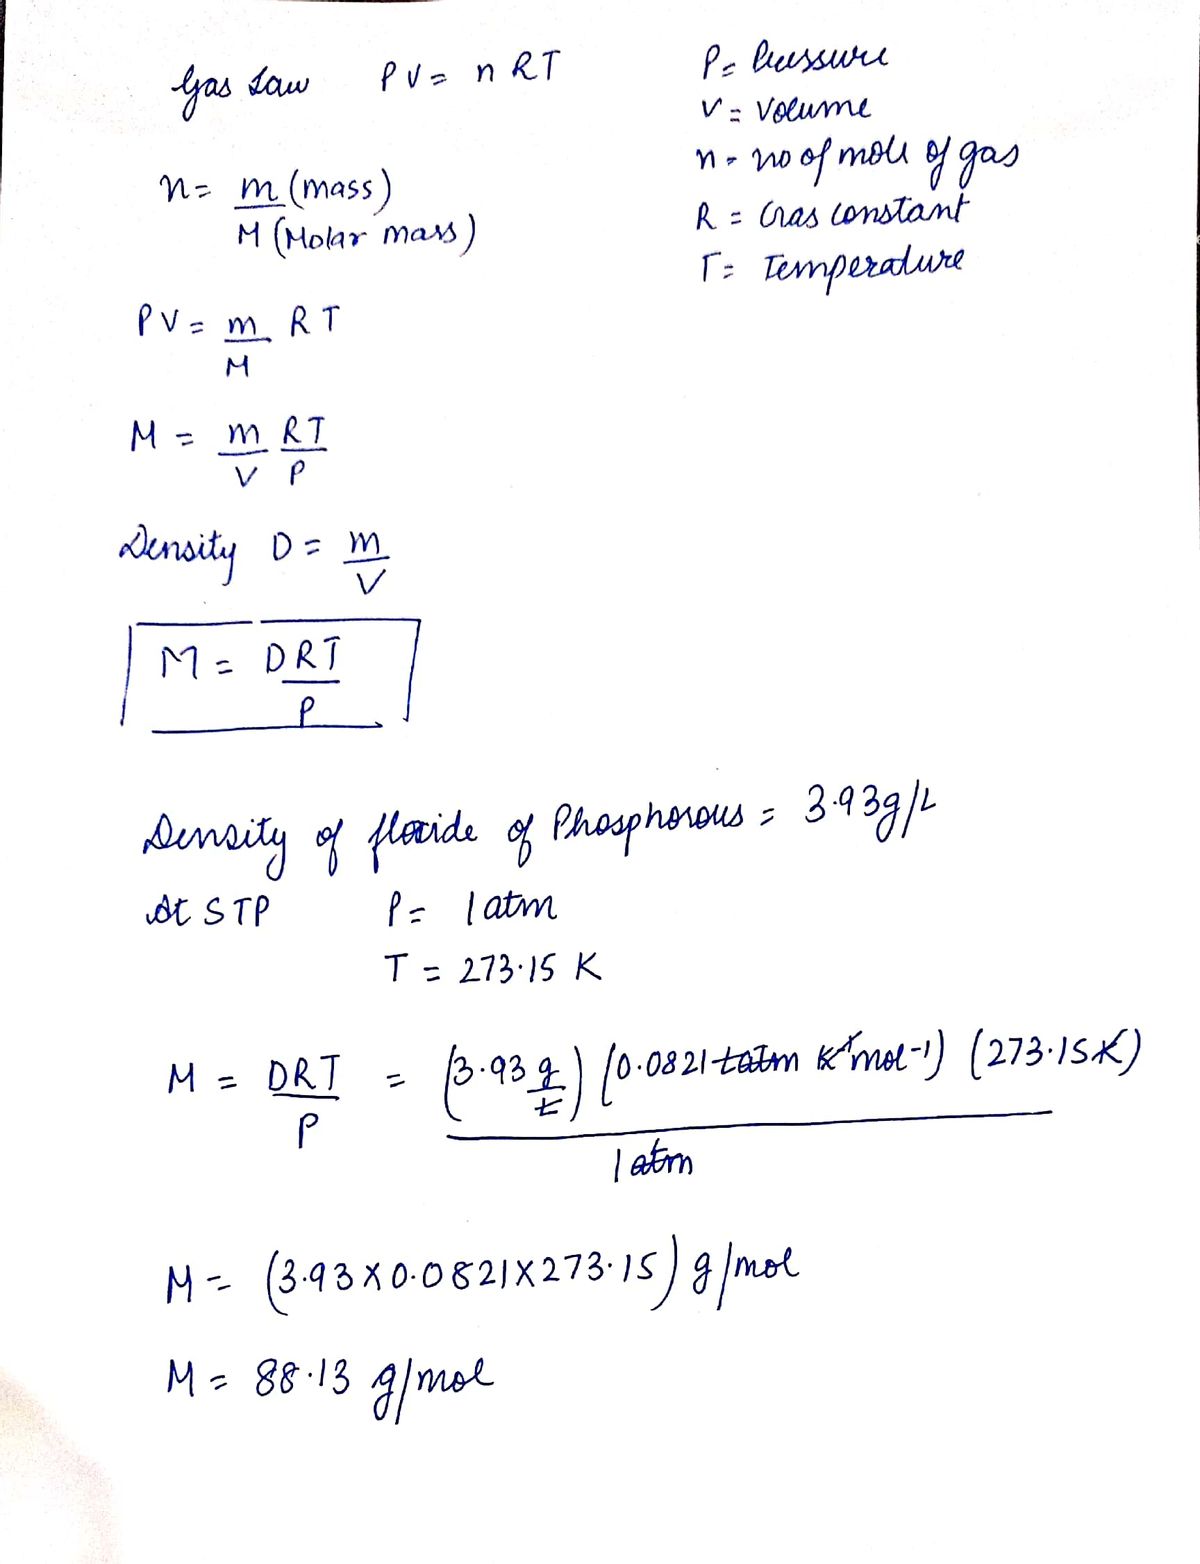 Gas Law PV = nRT
P = Pressure
V = Volume
n = no of mole of gas
R = Gas constant
T = Temperature
n = m (mass)
M (Molar mass)
PV = m RT
M
M = m RT
V P
Density D = m
V
M = DRT
P
Density of floride of Phosphorous = 3.93g/L
At STP P = 1 atm
T = 273.15 K
M = DRT = (3.93 g) (0.0821 L atm K⁻¹ mol⁻¹) (273.15K)
P L
1 atm
M = (3.93 X 0.0821 X 273.15) g/mol
M = 88.13 g/mol